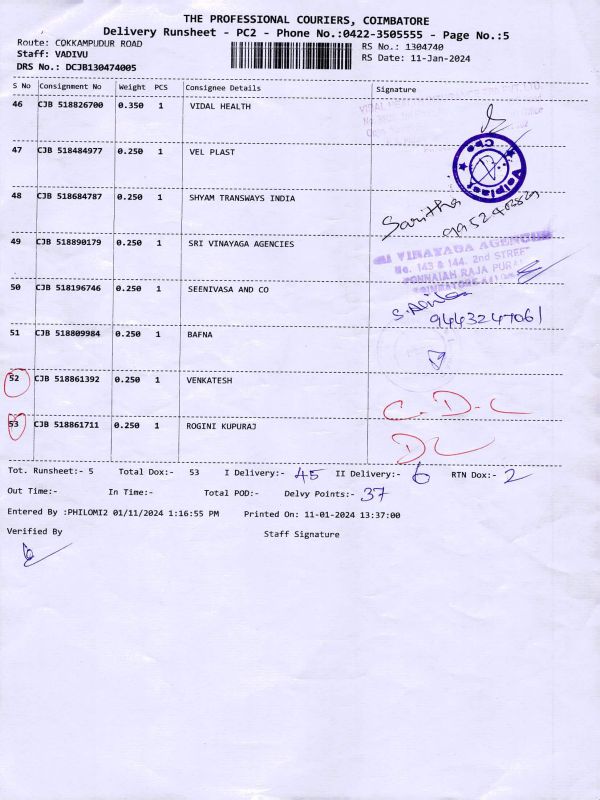 THE PROFESSIONAL COURIERS, COIMBATORE
Delivery Runsheet - PC2 - Phone No.:0422-3505555 - Page No.:5
Route: COKKAMPUDUR ROAD
Staff: VADIVU
DRS No.: DCJB130474005
RS No.: 1304740
RS Date: 11-Jan-2024
S No Consignment No Weight PCS Consignee Details Signature
46 CJB 518826700 0.350 1 VIDAL HEALTH
47 CJB 518484977 0.250 1 VEL PLAST
48 CJB 518684787 0.250 1 SHYAM TRANSWAYS INDIA
Saritha
49 CJB 518890179 0.250 1 SRI VINAYAGA AGENCIES
VINAYAGA AGENCIES
No. 143 & 144, 2nd STREET
PONNAIAH RAJA PURAM
50 CJB 518196746 0.250 1 SEENIVASA AND CO
9443247061
51 CJB 518809984 0.250 1 BAFNA
52 CJB 518861392 0.250 1 VENKATESH
C.D.L
53 CJB 518861711 0.250 1 ROGINI KUPURAJ
DL
Tot. Runsheet:- 5 Total Dox:- 53 I Delivery:- 45 II Delivery:- 6 RTN Dox:- 2
Out Time:- In Time:- Total POD:- Delvy Points:- 37
Entered By :PHILOMI2 01/11/2024 1:16:55 PM Printed On: 11-01-2024 13:37:00
Verified By Staff Signature